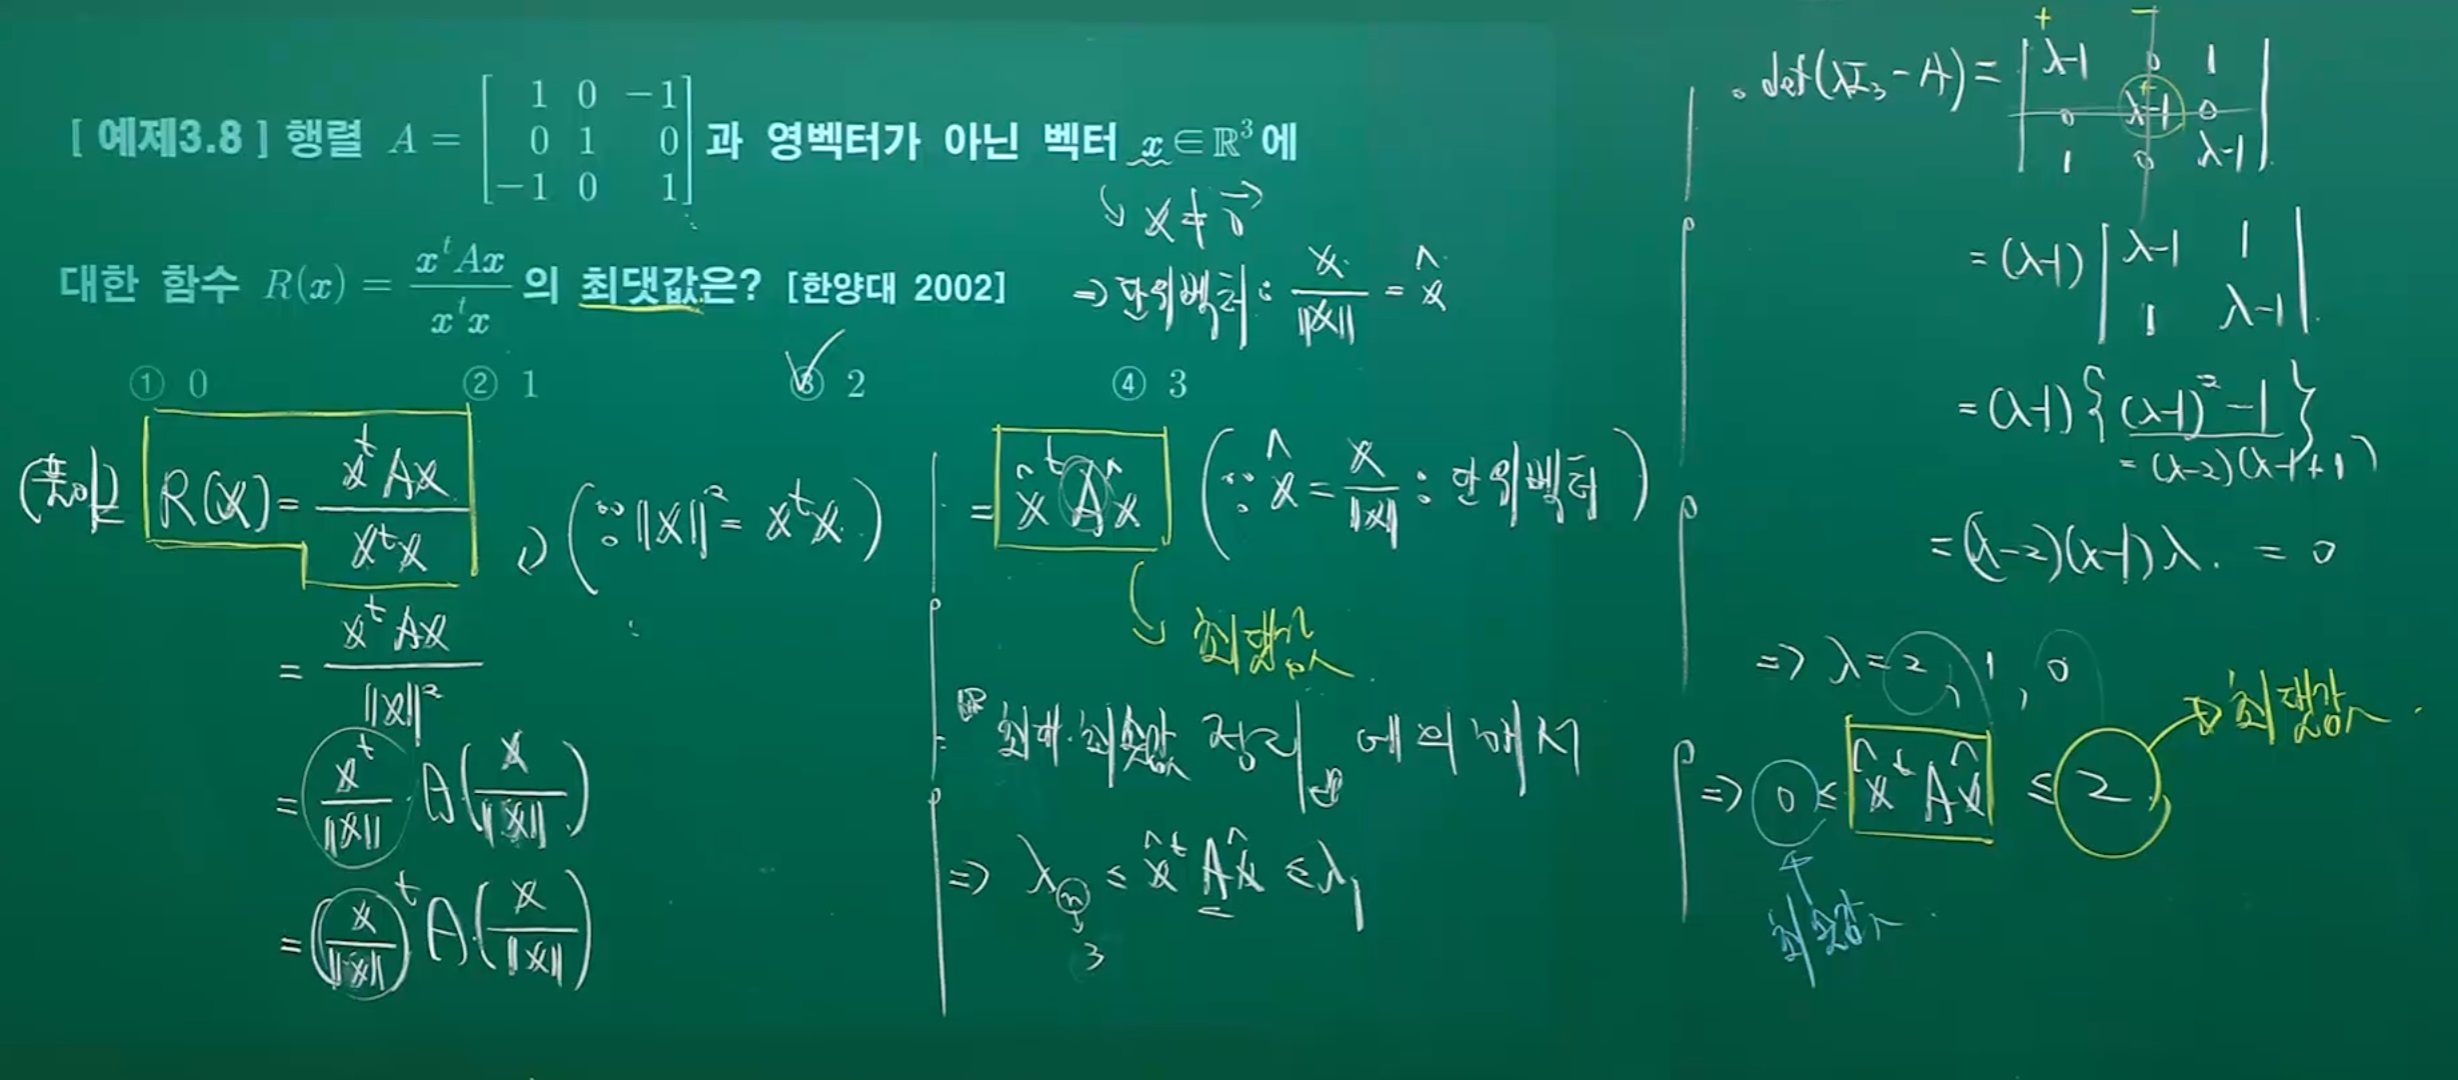 [ 예제3.8 ] 행렬 A = [ 1 0 −1 ; 0 1 0 ; −1 0 1 ] 과 영벡터가 아닌 벡터 x ∈ ℝ³에
대한 함수 R(x) = xᵗAx / xᵗx 의 최댓값은? [한양대 2002]
① 0 ② 1 ③ 2 ④ 3
↳ x ≠ 0⃗
⇒ 단위벡터 : x / ||x|| = x̂
(풀이) R(x) = xᵗAx / xᵗx
(∵ ||x||² = xᵗx)
= xᵗAx / ||x||²
= xᵗ/||x|| A (x/||x||)
= (x/||x||)ᵗ A (x/||x||)
= x̂ᵗAx̂ (∵ x̂ = x/||x|| : 단위벡터)
최댓값
최대·최솟값 정리에 의해서
⇒ λₙ ≤ x̂ᵗAx̂ ≤ λ₁
3
+ −
det(λI₃ − A) = | λ−1 0 1 ; 0 λ−1 0 ; 1 0 λ−1 |
+
= (λ−1) | λ−1 1 ; 1 λ−1 |
= (λ−1) { (λ−1)² − 1 }
= (λ−2)(λ−1+1)
= (λ−2)(λ−1)λ = 0
⇒ λ = 2, 1, 0
⇒ 0 ≤ x̂ᵗAx̂ ≤ 2 ⇒ 최댓값
최솟값